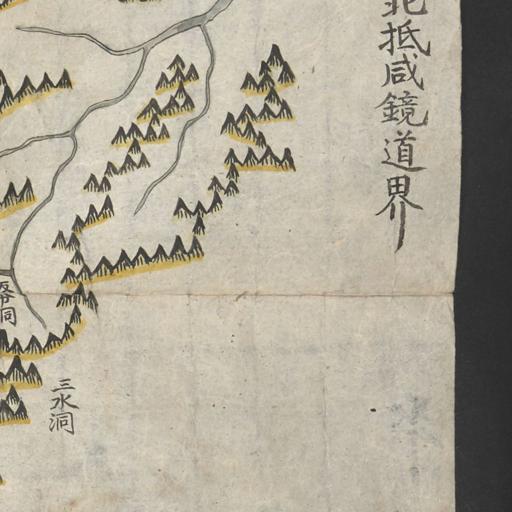 北抵咸鏡道界
三水洞
洞